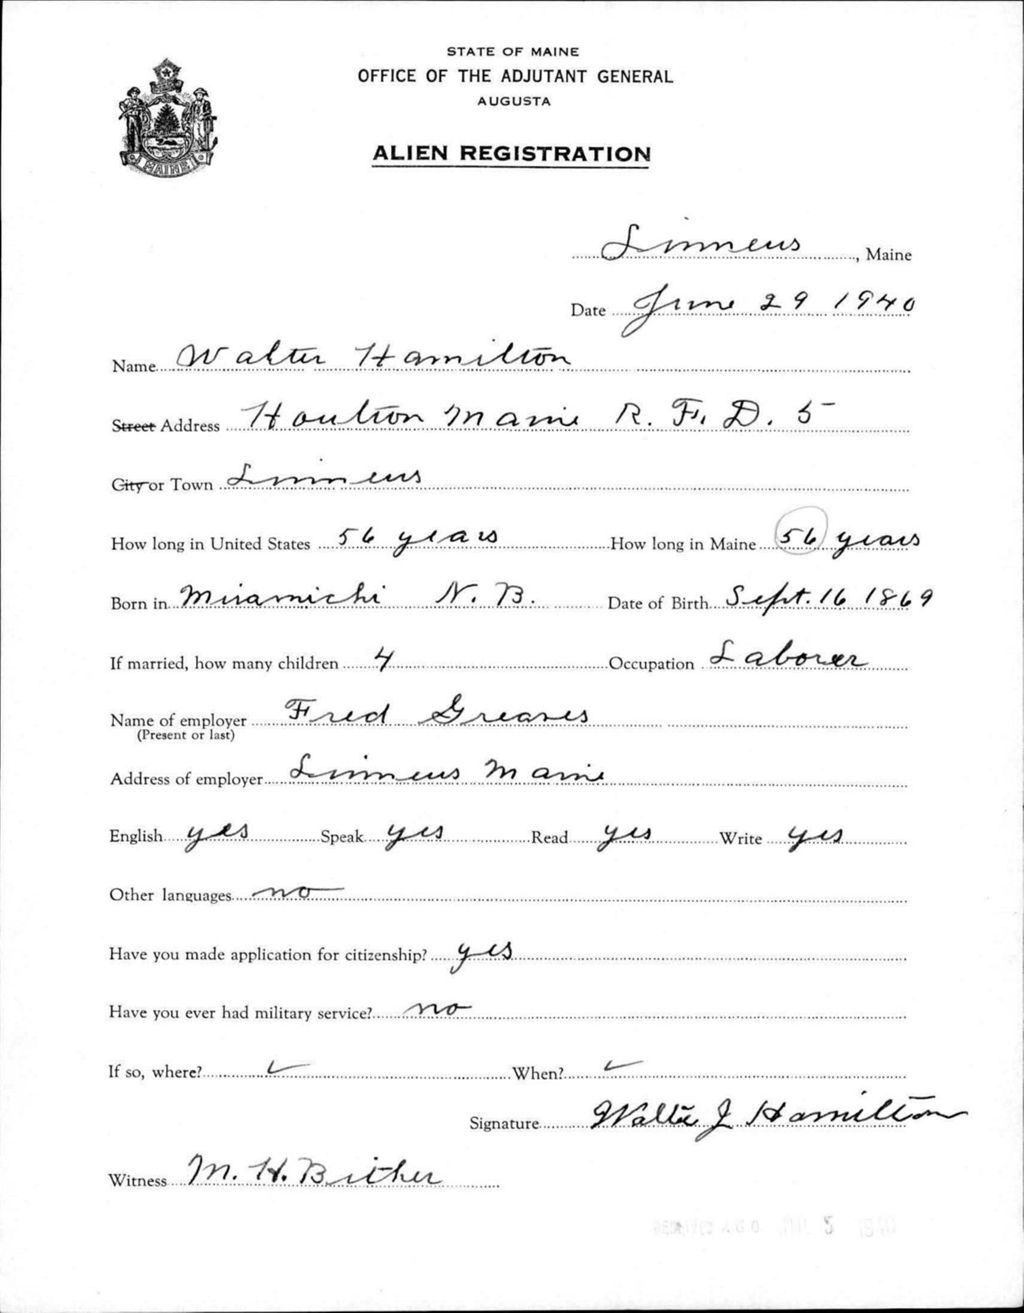 STATE OF MAINE
OFFICE OF THE ADJUTANT GENERAL
AUGUSTA
ALIEN REGISTRATION
MAINE
Linneus, Maine
Date June 29 1940
Name Walter Hamilton
Street Address Houlton Maine R. F. D. 5
City or Town Linneus
How long in United States 56 years How long in Maine 56 years
Born in Miramichi N. B. Date of Birth Sept. 16 1869
If married, how many children 4 Occupation Laborer
Name of employer Fred Greaves
(Present or last)
Address of employer Linneus Maine
English yes Speak yes Read yes Write yes
Other languages no
Have you made application for citizenship? yes
Have you ever had military service? no
If so, where? When?
Signature Walter J Hamilton
Witness M. H. Bither
RECEIVED A.G.O. JUL 5 1940